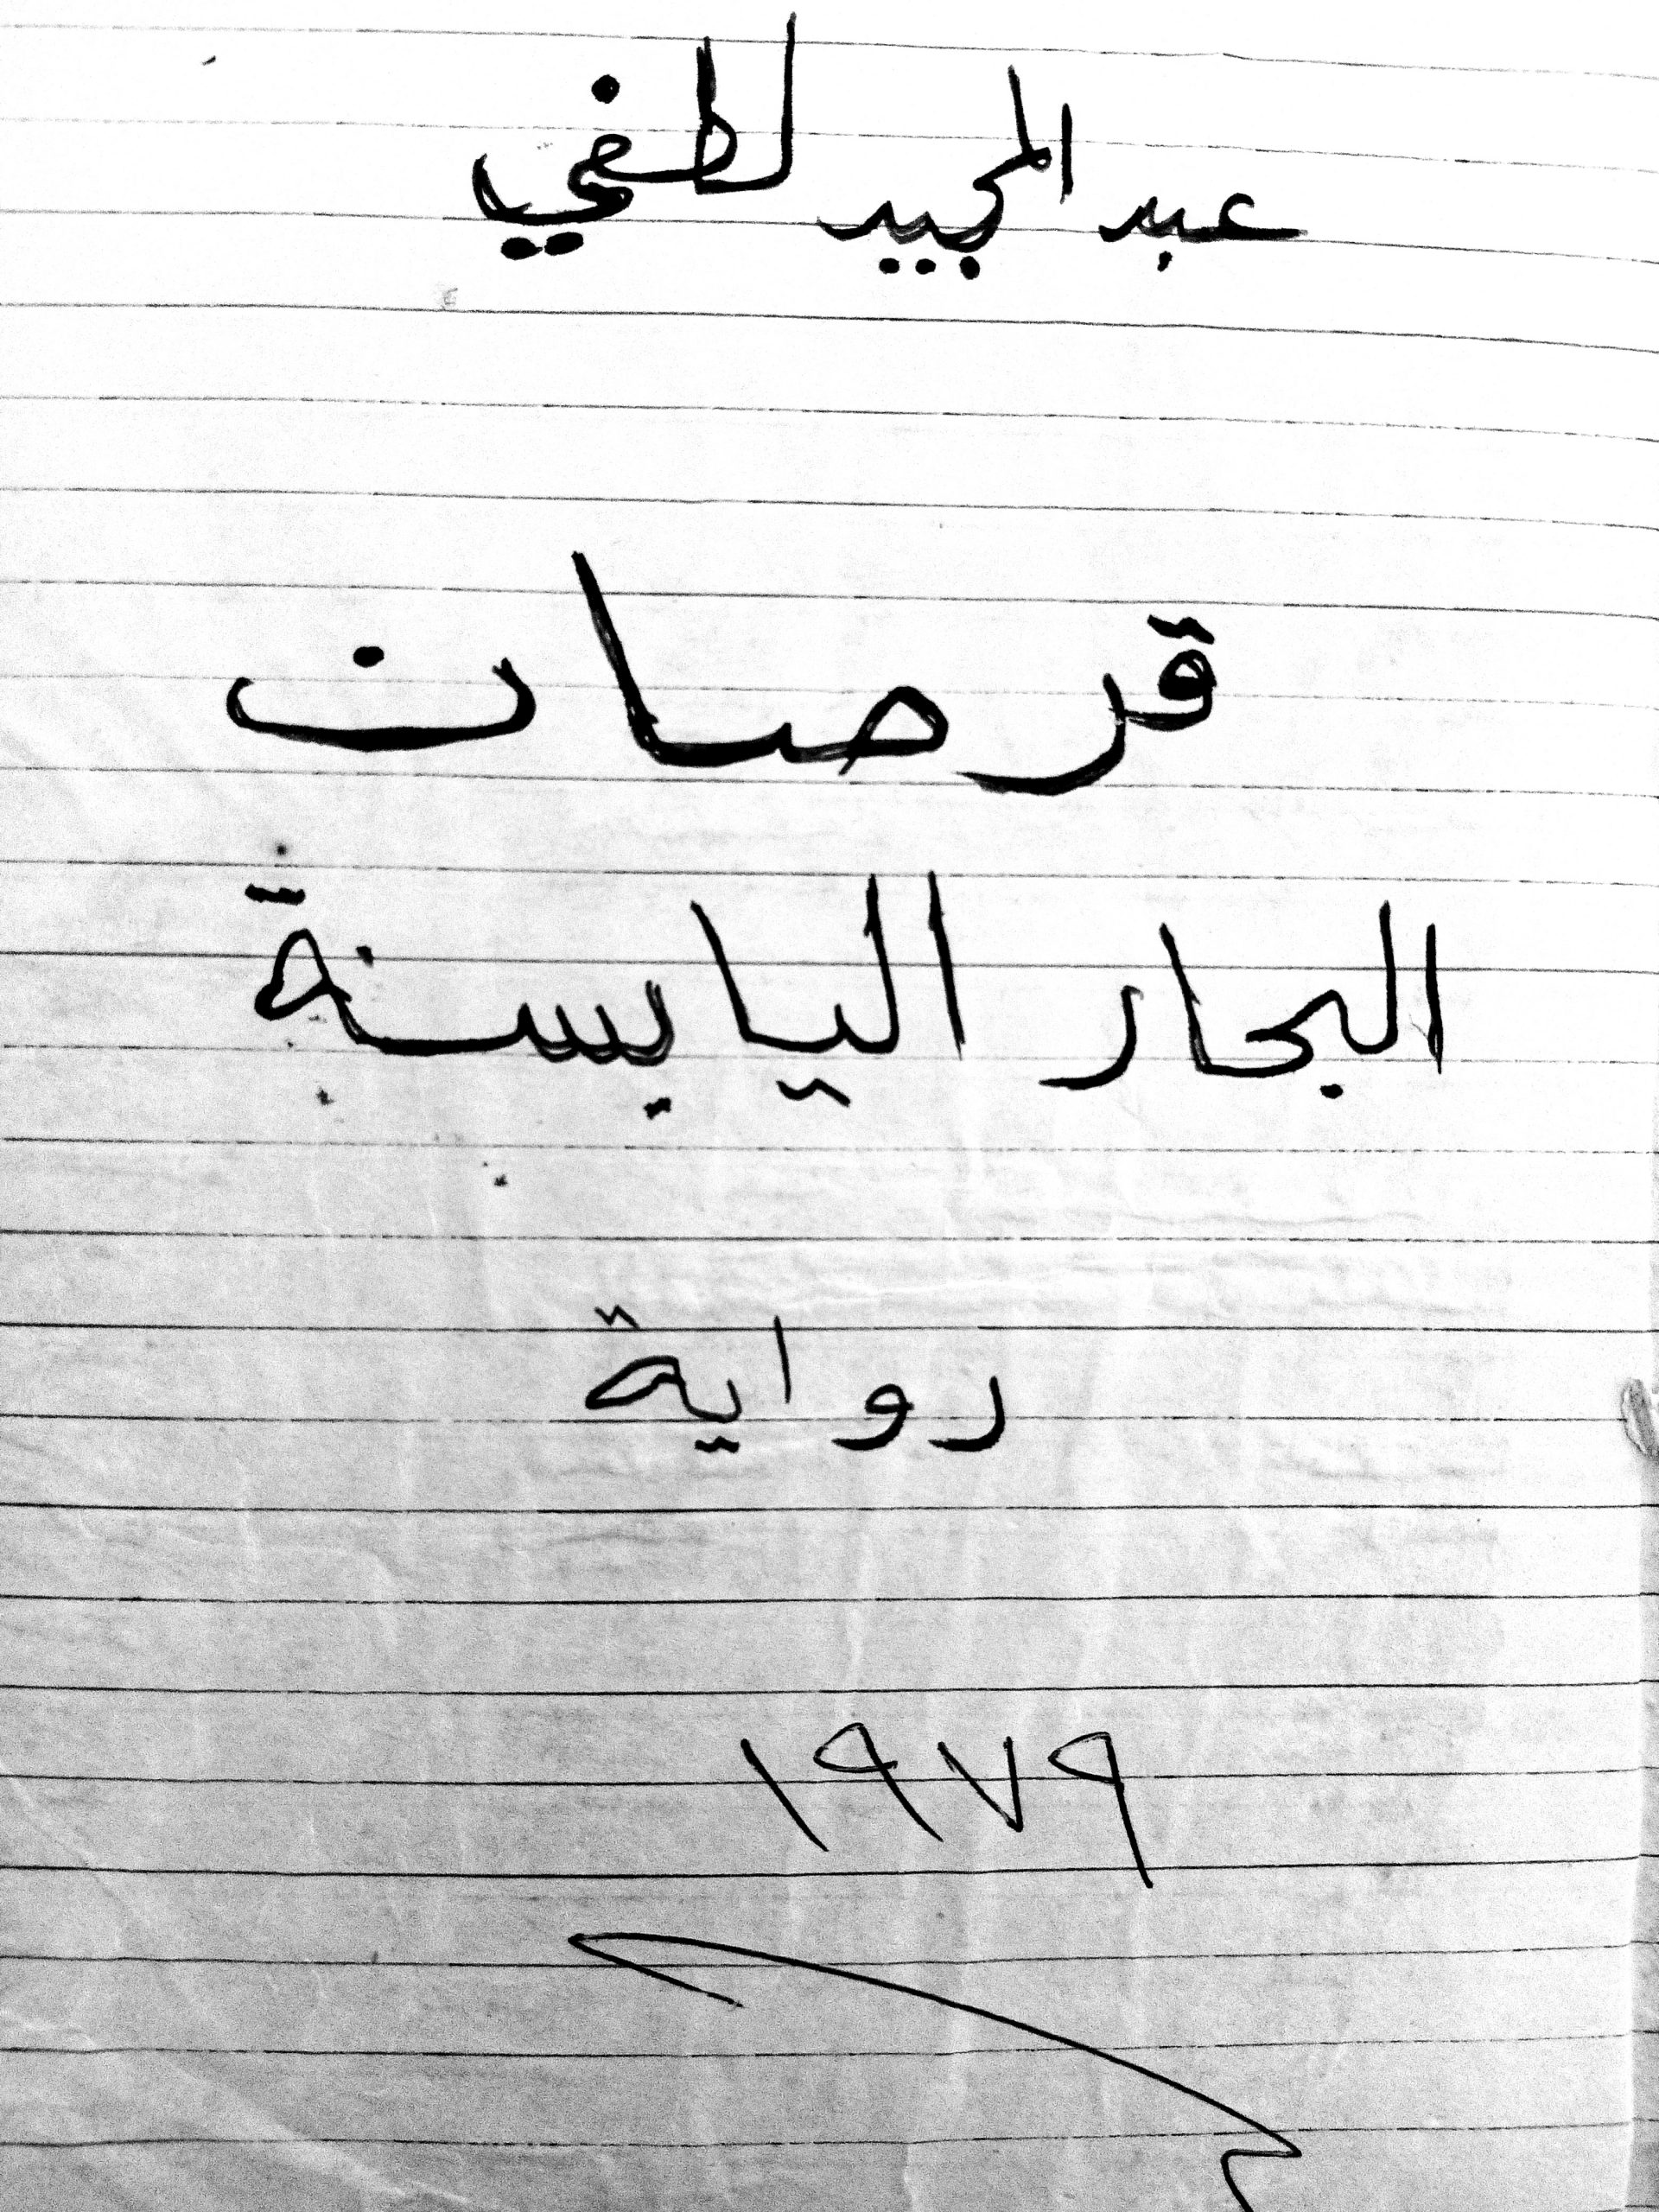 عبد المجيد لطفي
قرصان
البحار اليابسة
رواية
١٩٧٩